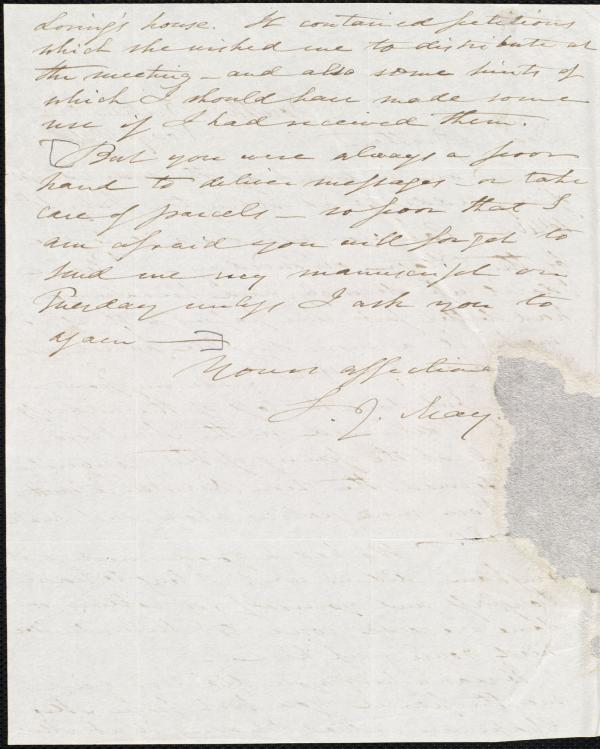 Loring's house. It contained petitions
which she wished me to distribute at
the meeting – and also some hints of
which I should have made some
use if I had received them.
[But you were always a poor
hand to deliver messages – or take
care of parcels – so poor that I
am afraid you will forget to
send me my manuscript on
Tuesday unless I ask you to
again —]
Yours affectiona
S. J. May.